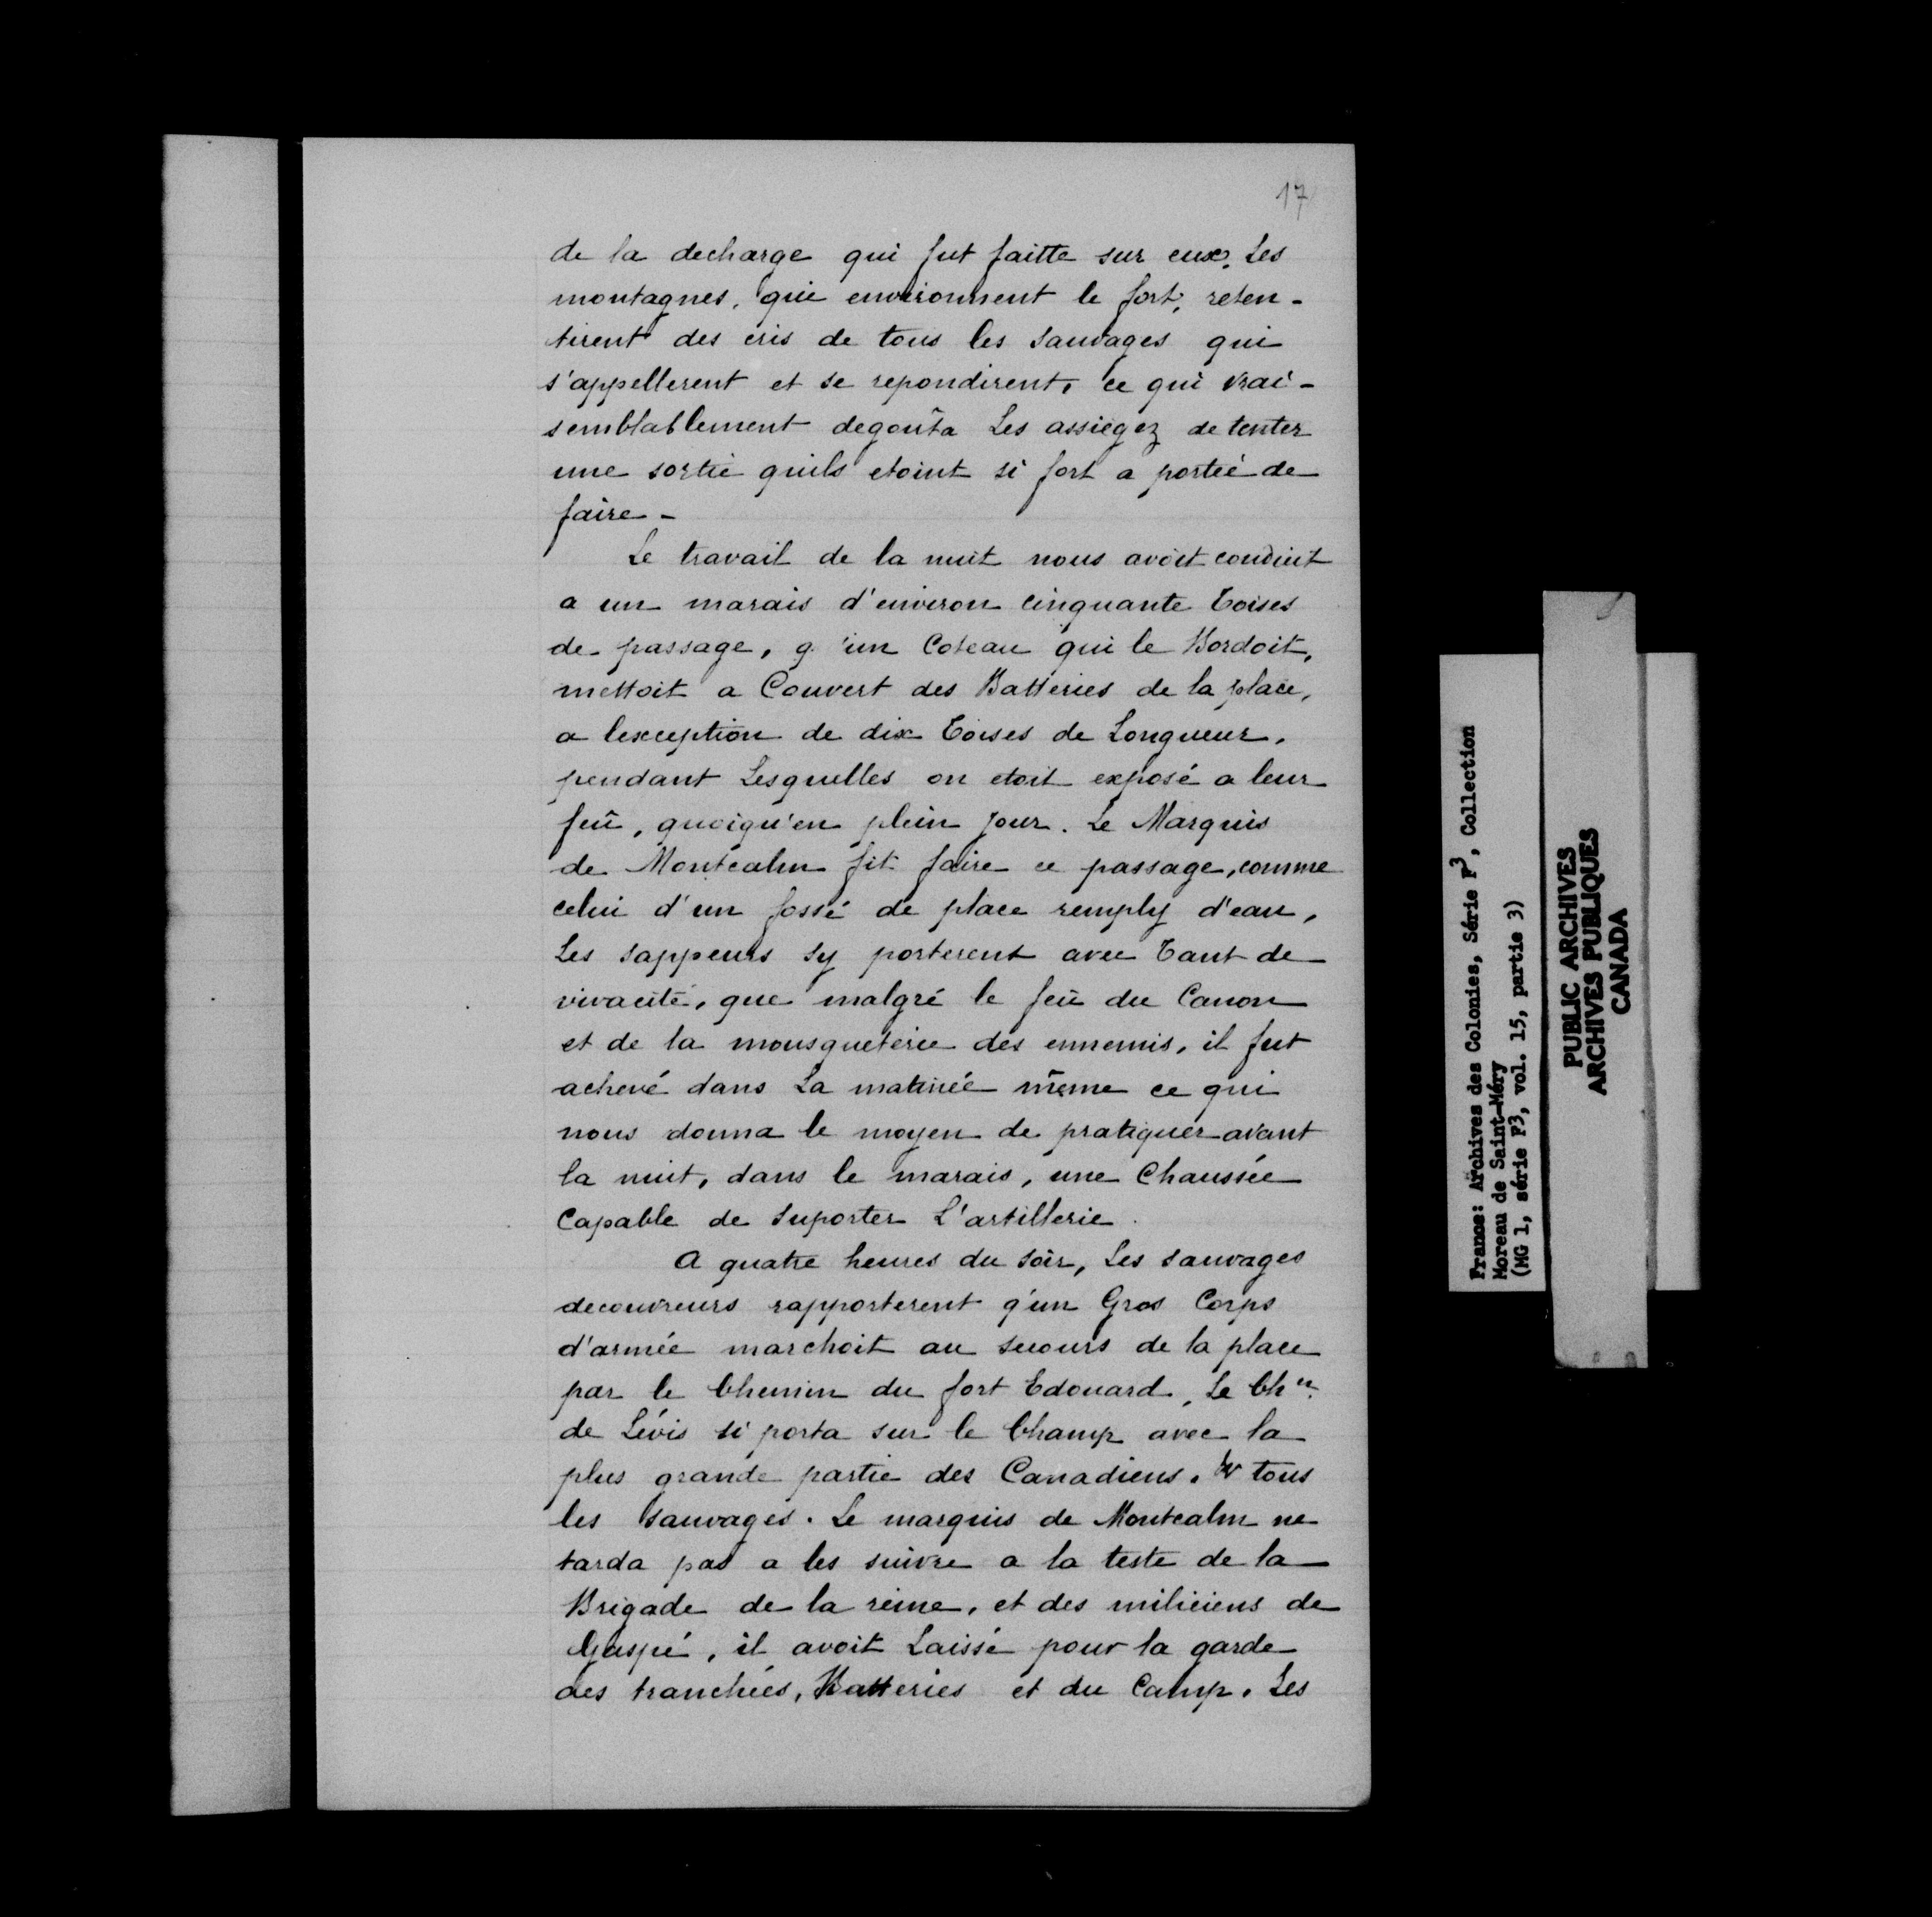 17
de la decharge qui fut faitte sur eux. Les
montagnes, qui environnent le fort, reten-
tirent des cris de tous les sauvages qui
s'appellerent et se repondirent, ce qui vrai-
semblablement degoûta Les assiégez de tenter
une sortie quils etoint si fort a portée de
faire -
Le travail de la nuit nous avoit conduit
a un marais d'environ cinquante Toises
de passage, q'un Coteau qui le Bordoit,
mettoit a Couvert des Batteries de la place,
a lexception de dix Toises de Longueur,
pendant Lesquelles on etoit exposé a leur
feû, quoiqu'en plein jour. Le Marquis
de Montcalm fit faire ce passage, comme
celui d'un fossé de place remply d'eau,
Les sappeurs sy porterent avec Tant de
vivacité, que malgré le feû du Canon
et de la mousqueterie des ennemis, il fut
achevé dans La matinée même ce qui
nous donna le moyen de pratiquer avant
la nuit, dans le marais, une Chaussée
Capable de suporter L'artillerie.
A quatre heures du soir, Les sauvages
decouvreurs rapporterent q'un Gros Corps
d'armée marchoit au secours de la place
par le Chemin du fort Edouard, Le Ch.er
de Lévis si porta sur le Champ avec la
plus grande partie des Canadiens. & tous
les sauvages. Le marquis de Montcalm ne
tarda pas a les suivre a la teste de la
Brigade de la reine, et des miliciens de
Gaspé, il avoit Laissé pour la garde
des tranchées, Batteries et du Camp. Les
France: Archives des Colonies, Série F3, Collection
Moreau de Saint-Méry
(MG 1, série F3, vol. 15, partie 3)
PUBLIC ARCHIVES
ARCHIVES PUBLIQUES
CANADA